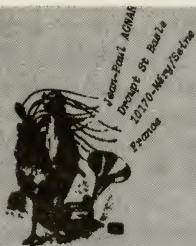 Jean-Paul AGNAR
Droupt St Basle
10170-Méry/Seine
France